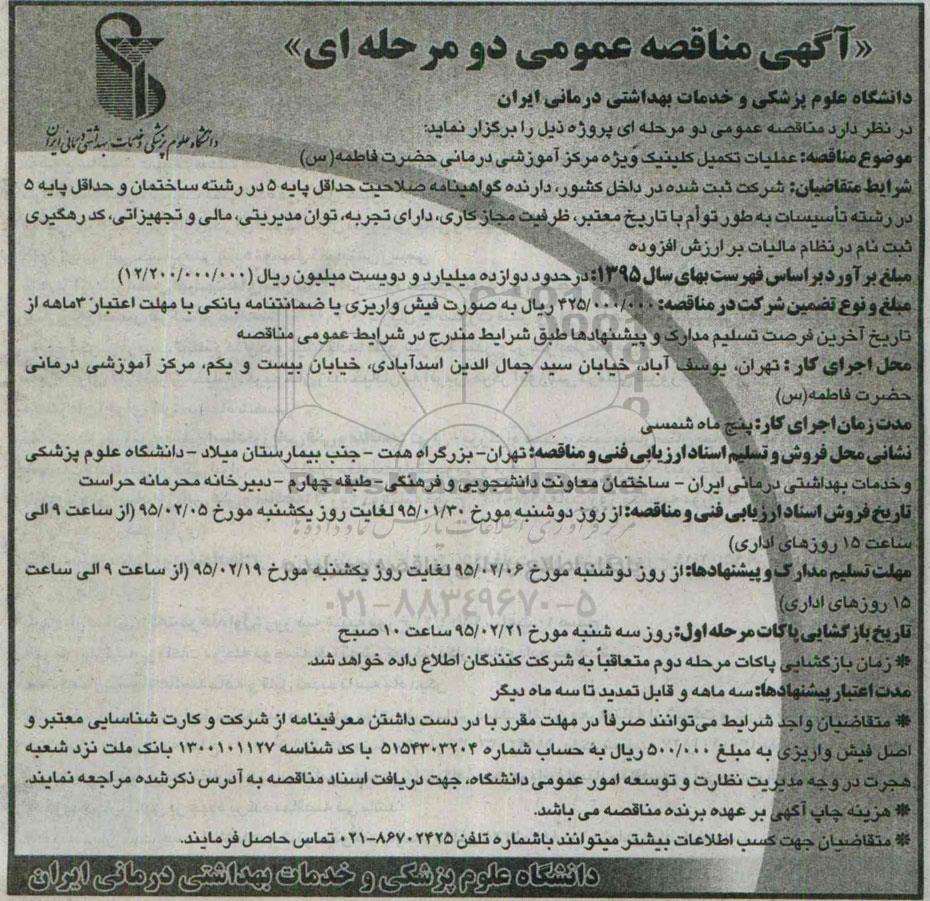 «آگهی مناقصه عمومی دو مرحله ای»
دانشگاه علوم پزشکی و خدمات بهداشتی درمانی ایران
دانشگاه علوم پزشکی و خدمات بهداشتی درمانی ایران
در نظر دارد مناقصه عمومی دو مرحله ای پروژه ذیل را برگزار نماید:
موضوع مناقصه: عملیات تکمیل کلینیک ویژه مرکز آموزشی درمانی حضرت فاطمه(س)
شرایط متقاضیان: شرکت ثبت شده در داخل کشور، دارنده گواهینامه صلاحیت حداقل پایه ۵ در رشته ساختمان و حداقل پایه ۵
در رشته تأسیسات به طور توأم با تاریخ معتبر، ظرفیت مجاز کاری، دارای تجربه، توان مدیریتی، مالی و تجهیزاتی، کد رهگیری
ثبت نام در نظام مالیات بر ارزش افزوده
مبلغ برآورد بر اساس فهرست بهای سال ۱۳۹۵: در حدود دوازده میلیارد و دویست میلیون ریال (۱۲/۲۰۰/۰۰۰/۰۰۰)
مبلغ و نوع تضمین شرکت در مناقصه: ۴۲۵/۰۰۰/۰۰۰ ریال به صورت فیش واریزی یا ضمانتنامه بانکی با مهلت اعتبار ۳ماهه از
تاریخ آخرین فرصت تسلیم مدارک و پیشنهادها طبق شرایط مندرج در شرایط عمومی مناقصه
محل اجرای کار: تهران، یوسف آباد، خیابان سید جمال الدین اسدآبادی، خیابان بیست و یکم، مرکز آموزشی درمانی
حضرت فاطمه(س)
مدت زمان اجرای کار: پنج ماه شمسی
نشانی محل فروش و تسلیم اسناد ارزیابی فنی و مناقصه: تهران- بزرگراه همت - جنب بیمارستان میلاد -دانشگاه علوم پزشکی
و خدمات بهداشتی درمانی ایران - ساختمان معاونت دانشجویی و فرهنگی-طبقه چهارم -دبیرخانه محرمانه حراست
تاریخ فروش اسناد ارزیابی فنی و مناقصه: از روز دوشنبه مورخ ۹۵/۰۱/۳۰ لغایت روز یکشنبه مورخ ۹۵/۰۲/۰۵ (از ساعت ۹ الی
ساعت ۱۵ روزهای اداری)
مهلت تسلیم مدارک و پیشنهادها: از روز دوشنبه مورخ ۹۵/۰۲/۰۶ لغایت روز یکشنبه مورخ ۹۵/۰۲/۱۹ (از ساعت ۹ الی ساعت
۱۵ روزهای اداری)
۰۲۱-۸۸۳۴۹۶۷۰-۵
تاریخ بازگشایی پاکات مرحله اول: روز سه شنبه مورخ ۹۵/۰۲/۲۱ ساعت ۱۰ صبح
* زمان بازگشایی پاکات مرحله دوم متعاقباً به شرکت کنندگان اطلاع داده خواهد شد.
مدت اعتبار پیشنهادها: سه ماهه و قابل تمدید تا سه ماه دیگر
* متقاضیان واجد شرایط می‌توانند صرفاً در مهلت مقرر با در دست داشتن معرفینامه از شرکت و کارت شناسایی معتبر و
اصل فیش واریزی به مبلغ ۵۰۰/۰۰۰ ریال به حساب شماره ۵۱۵۴۳۰۳۲۰۴ با کد شناسه ۱۳۰۰۱۰۱۱۲۷ بانک ملت نزد شعبه
هجرت در وجه مدیریت نظارت و توسعه امور عمومی دانشگاه، جهت دریافت اسناد مناقصه به آدرس ذکرشده مراجعه نمایند.
* هزینه چاپ آگهی بر عهده برنده مناقصه می باشد.
* متقاضیان جهت کسب اطلاعات بیشتر میتوانند باشماره تلفن ۸۶۷۰۲۴۲۵-۰۲۱ تماس حاصل فرمایند.
دانشگاه علوم پزشکی و خدمات بهداشتی درمانی ایران